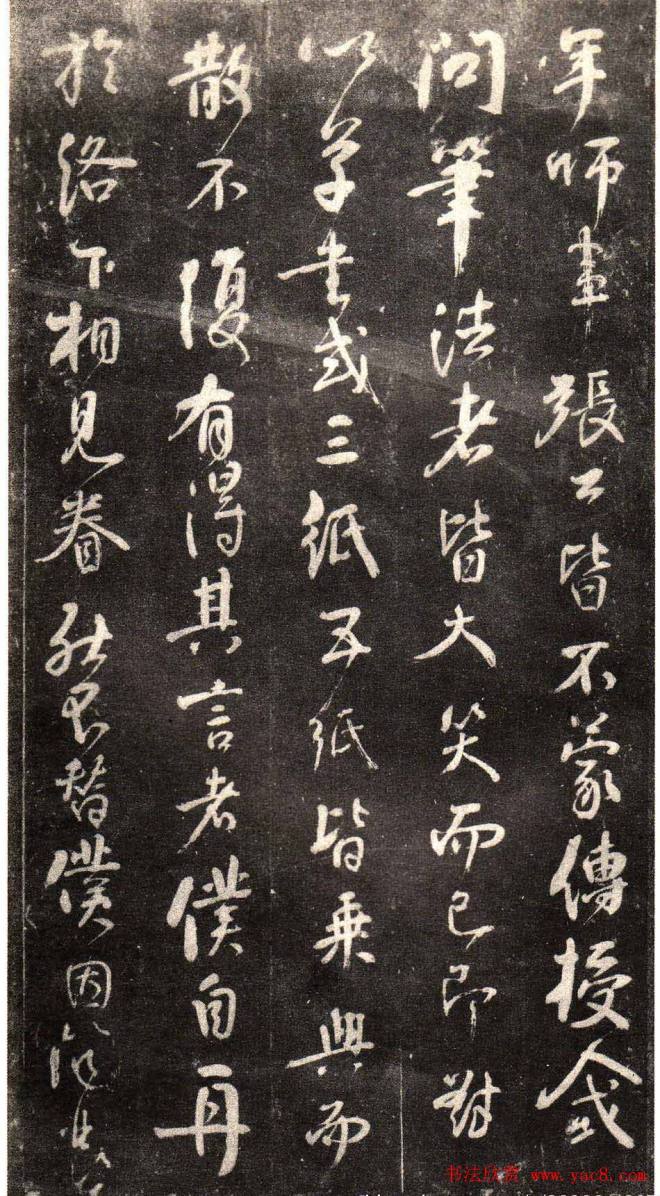 年師事張公皆不蒙傳授人或
問筆法者皆大笑而已即對
以草書或三紙五紙皆乘興而
散不復有得其言者僕自再
於洛下相見眷然不替僕因
书法欣赏 www.yac8.com